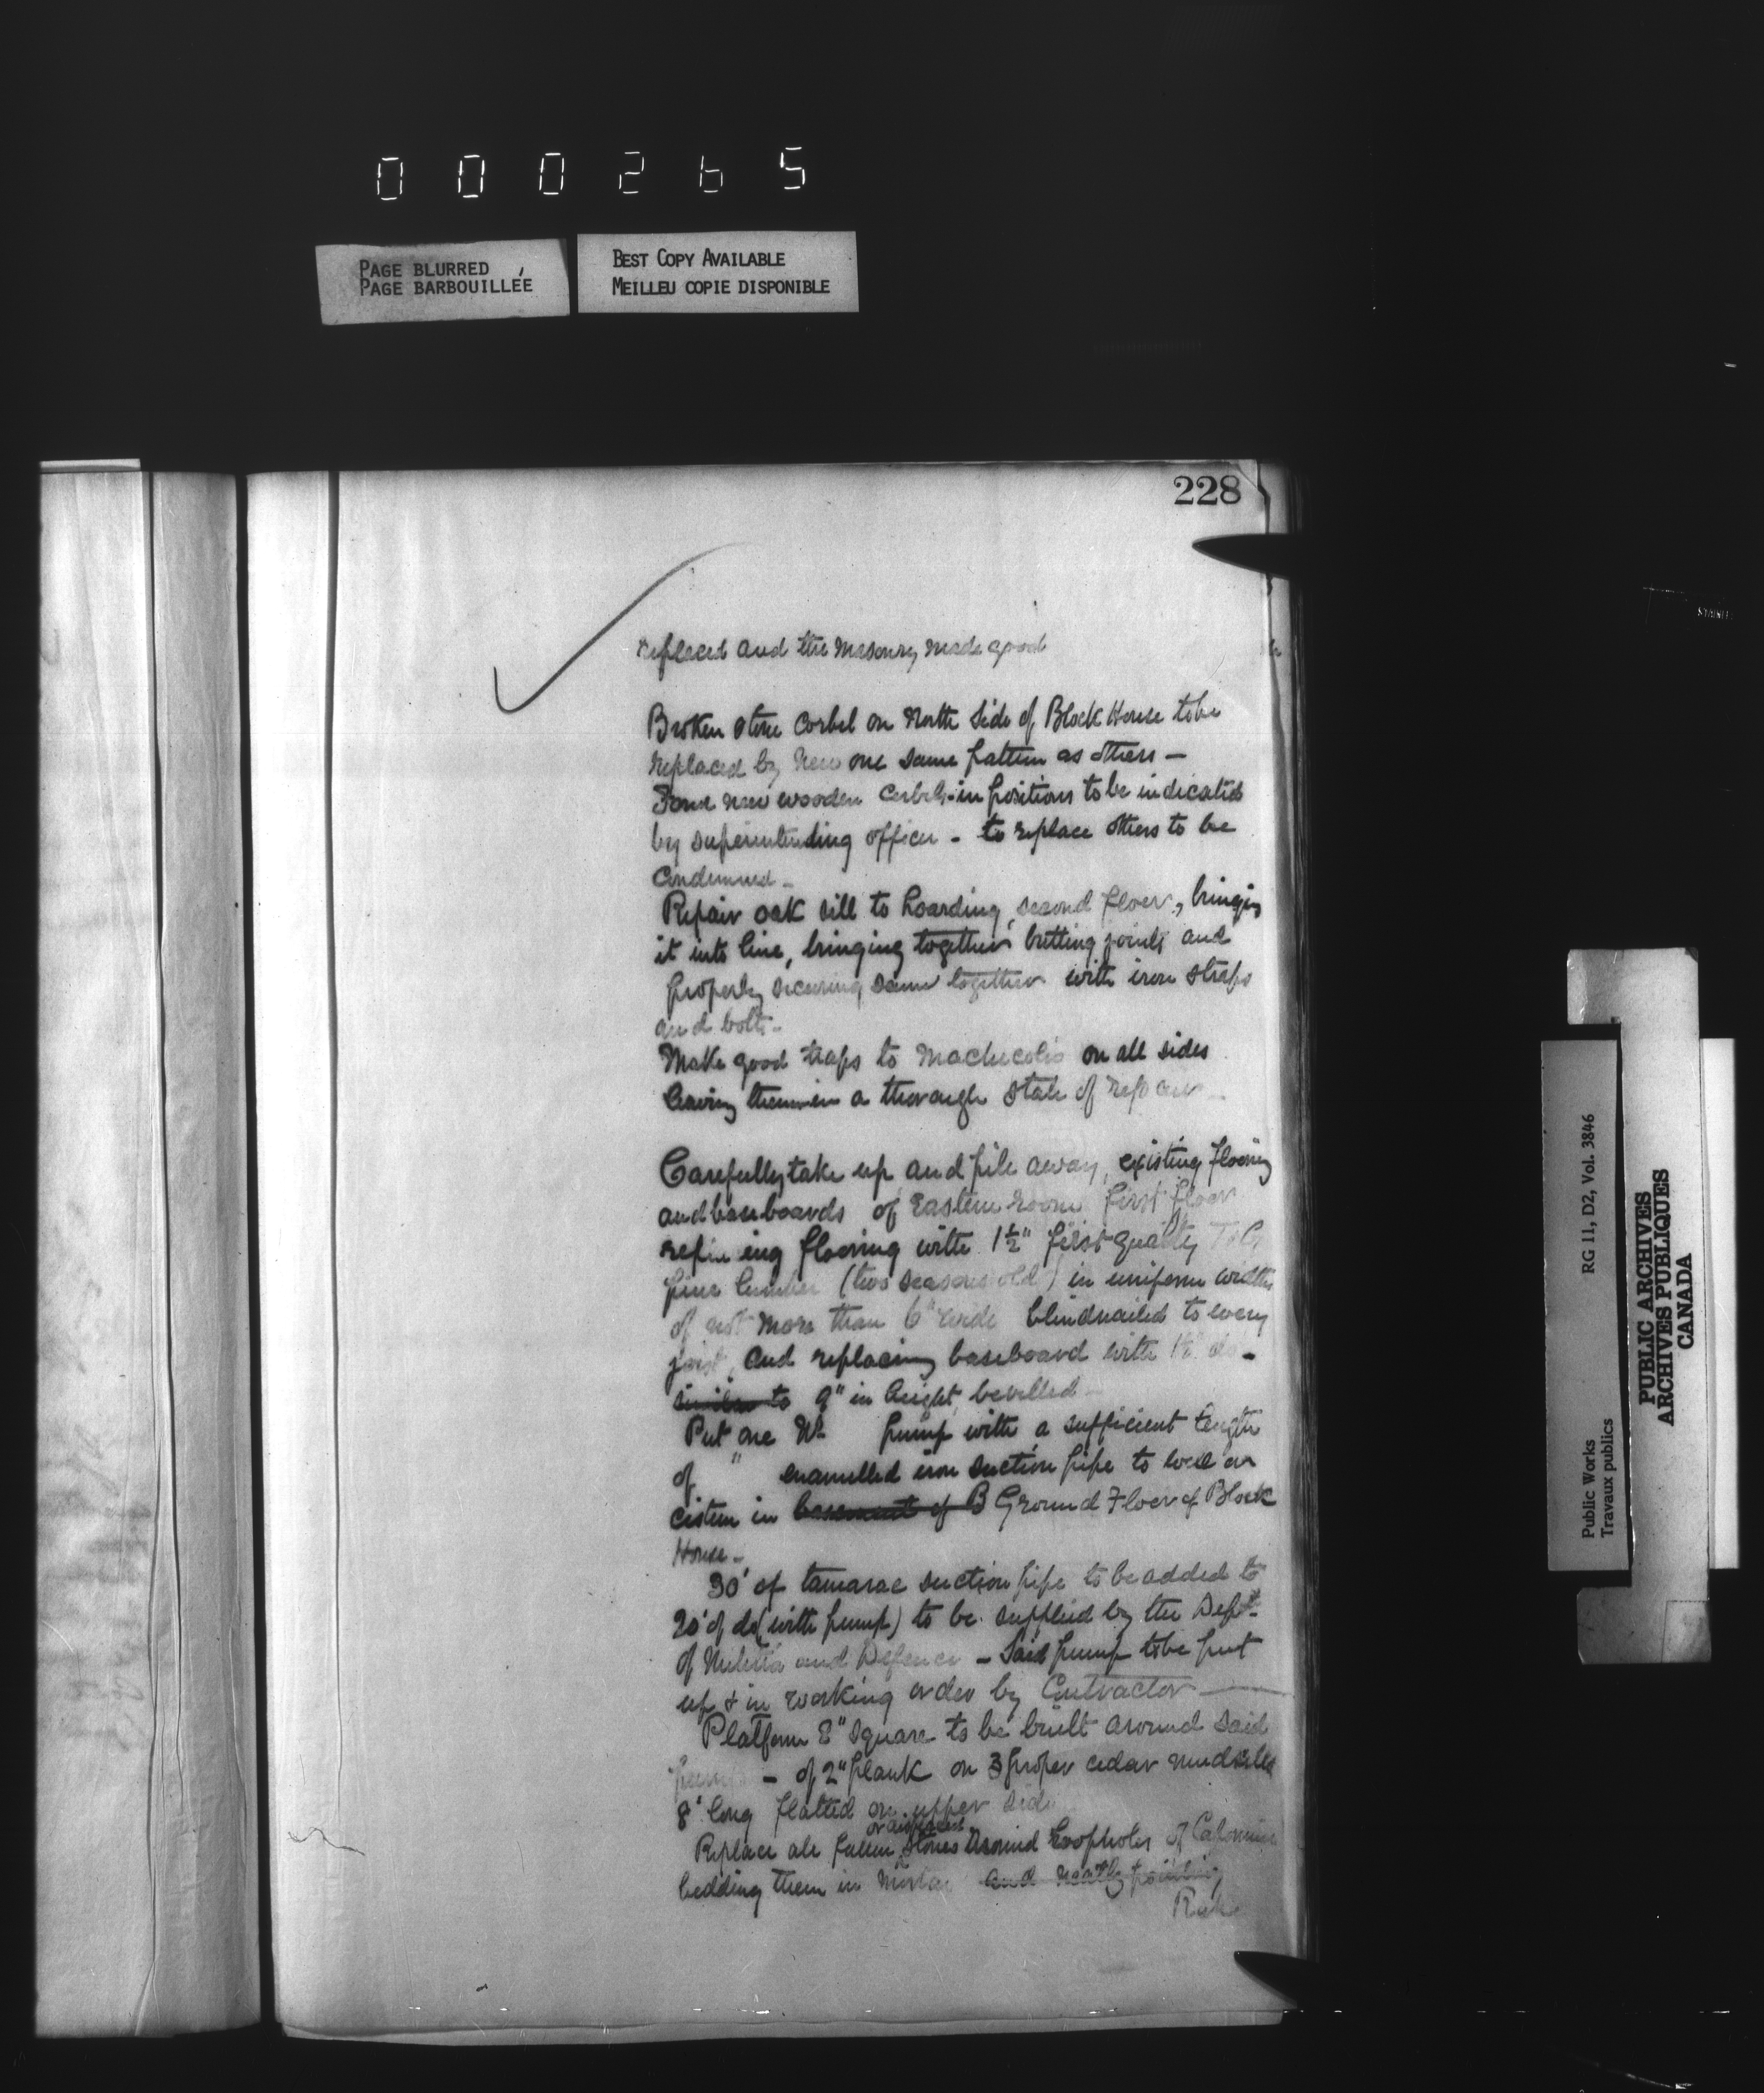 000265
PAGE BLURRED
PAGE BARBOUILLÉE
BEST COPY AVAILABLE
MEILLEU COPIE DISPONIBLE
228
replaced and the Masonry made good
Broken stone Corbel on North Side of Block House to be
replaced by New one same pattern as others —
Four new wooden Corbels in positions to be indicated
by superintending officer - to replace others to be
Condemned -
Repair oak sill to hoarding, second floor, bringing
it into line, bringing together butting joints and
properly securing same together with iron straps
and bolts -
Make good traps to Machicolis on all sides
leaving them in a thorough state of repair
Carefully take up and pile away, existing flooring
and baseboards of Eastern room first floor
flooring with 1½" first quality T&G
pine lumber (two seasons old) in uniform widths
of not more than 6" wide blindnailed to every
joist, and replacing baseboard with 1½" do -
similar to 9" in height, bevelled -
Put one Wt pump with a sufficient length
of " enamelled iron suction pipe to well or
cistern in basement of B Ground Floor of Block
House -
30' of tamarac suction pipe to be added to
20' of do (with pump) to be supplied by the Dept.
of Militia and Defence - Said pump to be put
up & in working order by Contractor —
Platform 8" square to be built around said
pump - of 2" plank on 3 proper cedar mudsills
8' long flatted on upper side
or displaced
Replace all fallen stones around Loopholes of
bedding them in Mortar and neatly pointing
PUBLIC ARCHIVES
ARCHIVES PUBLIQUES
CANADA
RG 11, D2, Vol. 3846
Public Works
Travaux publics